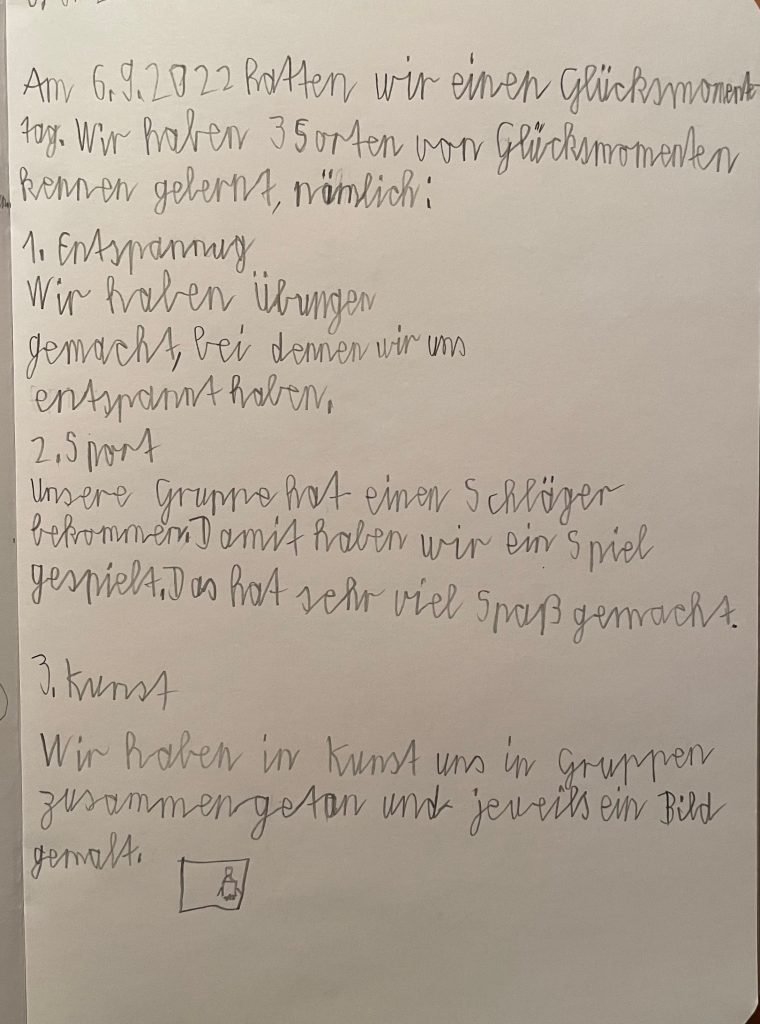 Am 6.9.2022 hatten wir einen Glücksmoment
tag. Wir haben 3 Sorten von Glücksmomenten
kennen gelernt, nämlich:
1. Entspannug
Wir haben Übungen
gemacht, bei dennen wir uns
entspannt haben.
2. Sport
Unsere Gruppe hat einen Schläger
bekommen. Damit haben wir ein Spiel
gespielt. Das hat sehr viel Spaß gemacht.
3. Kunst
Wir haben in Kunst uns in Gruppen
zusammengetan und jeweils ein Bild
gemalt.